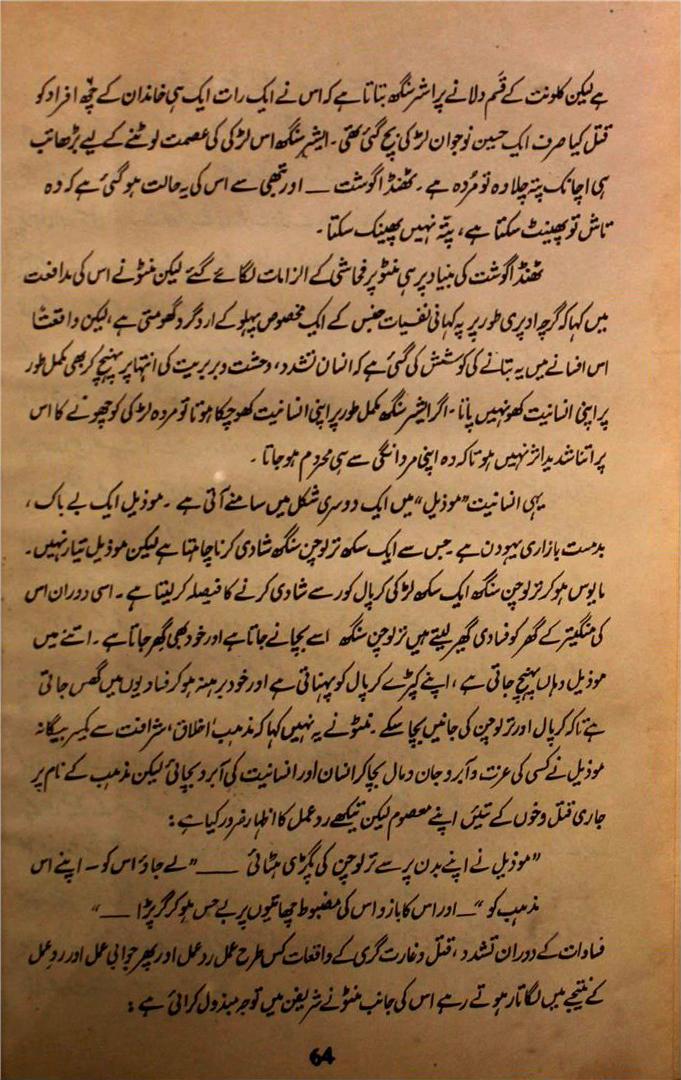 ہے لیکن کلونت کے قسم دلانے پر اشر سنگھ بتاتا ہے کہ اس نے ایک رات ایک ہی خاندان کے چھ افراد کو
قتل کیا صرف ایک حسین نوجوان لڑکی بچ گئی تھی۔ ایشر سنگھ اس لڑکی کی عصمت لوٹنے کے لیے بڑھا تب
ہی اچانک پتہ چلا وہ تو مُردہ ہے۔ ٹھنڈا گوشت — اور تبھی سے اس کی یہ حالت ہو گئی ہے کہ وہ
تاش تو پھینٹ سکتا ہے، پتّہ نہیں پھینک سکتا۔
ٹھنڈا گوشت کی بنیاد پر ہی منٹو پر فحاشی کے الزامات لگائے گئے لیکن منٹو نے اس کی مدافعت
میں کہا کہ گرچہ اوپری طور پر یہ کہانی نفسیات جنس کے ایک مخصوص پہلو کے اردگرد گھومتی ہے، لیکن واقعتاً
اس افسانے میں یہ بتانے کی کوشش کی گئی ہے کہ انسان تشدد، وحشت و بربریت کی انتہا پر پہنچ کر بھی مکمل طور
پر اپنی انسانیت کھو نہیں پاتا۔ اگر ایشر سنگھ مکمل طور پر اپنی انسانیت کھو چکا ہوتا تو مردہ لڑکی کو چھونے کا اس
پر اتنا شدید اثر نہیں ہوتا کہ وہ اپنی مردانگی سے ہی محروم ہو جاتا۔
یہی انسانیت "موذیل" میں ایک دوسری شکل میں سامنے آتی ہے۔ موذیل ایک بے باک،
بدمست بازاری یہودن ہے۔ جس سے ایک سکھ ترلوچن سنگھ شادی کرنا چاہتا ہے لیکن موذیل تیار نہیں۔
مایوس ہو کر ترلوچن سنگھ ایک سکھ لڑکی کرپال کور سے شادی کرنے کا فیصلہ کر لیتا ہے۔ اسی دوران اس
کی منگیتر کے گھر کو فسادی گھیر لیتے ہیں ترلوچن سنگھ اسے بچانے جاتا ہے اور خود بھی گھر جاتا ہے۔ اتنے میں
موذیل وہاں پہنچ جاتی ہے، اپنے کپڑے کرپال کو پہناتی ہے اور خود برہنہ ہو کر فسادیوں میں گھس جاتی
ہے تاکہ کرپال اور ترلوچن کی جانیں بچا سکے۔ منٹو نے یہ نہیں کہا کہ مذہب، اخلاق، شرافت سے یکسر بیگانہ
موذیل نے کسی کی عزت و آبرو جان و مال بچا کر انسان اور انسانیت کی آبرو بچائی لیکن مذہب کے نام پر
جاری قتل و خوں کے تئیں اپنے معصوم لیکن تیکھے ردعمل کا اظہار ضرور کیا ہے:
"موذیل نے اپنے بدن پر سے ترلوچن کی پگڑی ہٹائی — "لے جاؤ اس کو — اپنے اس
مذہب کو" — اور اس کا بازو اس کی مضبوط چھاتیوں پر بے حس ہو کر گر پڑا —"
فسادات کے دوران تشدد، قتل و غارت گری کے واقعات کس طرح عمل ردعمل اور پھر جوابی عمل اور ردعمل
کے نتیجے میں لگاتار ہوتے رہے اس کی جانب منٹو نے شریفن میں توجہ مبذول کرائی ہے:
64